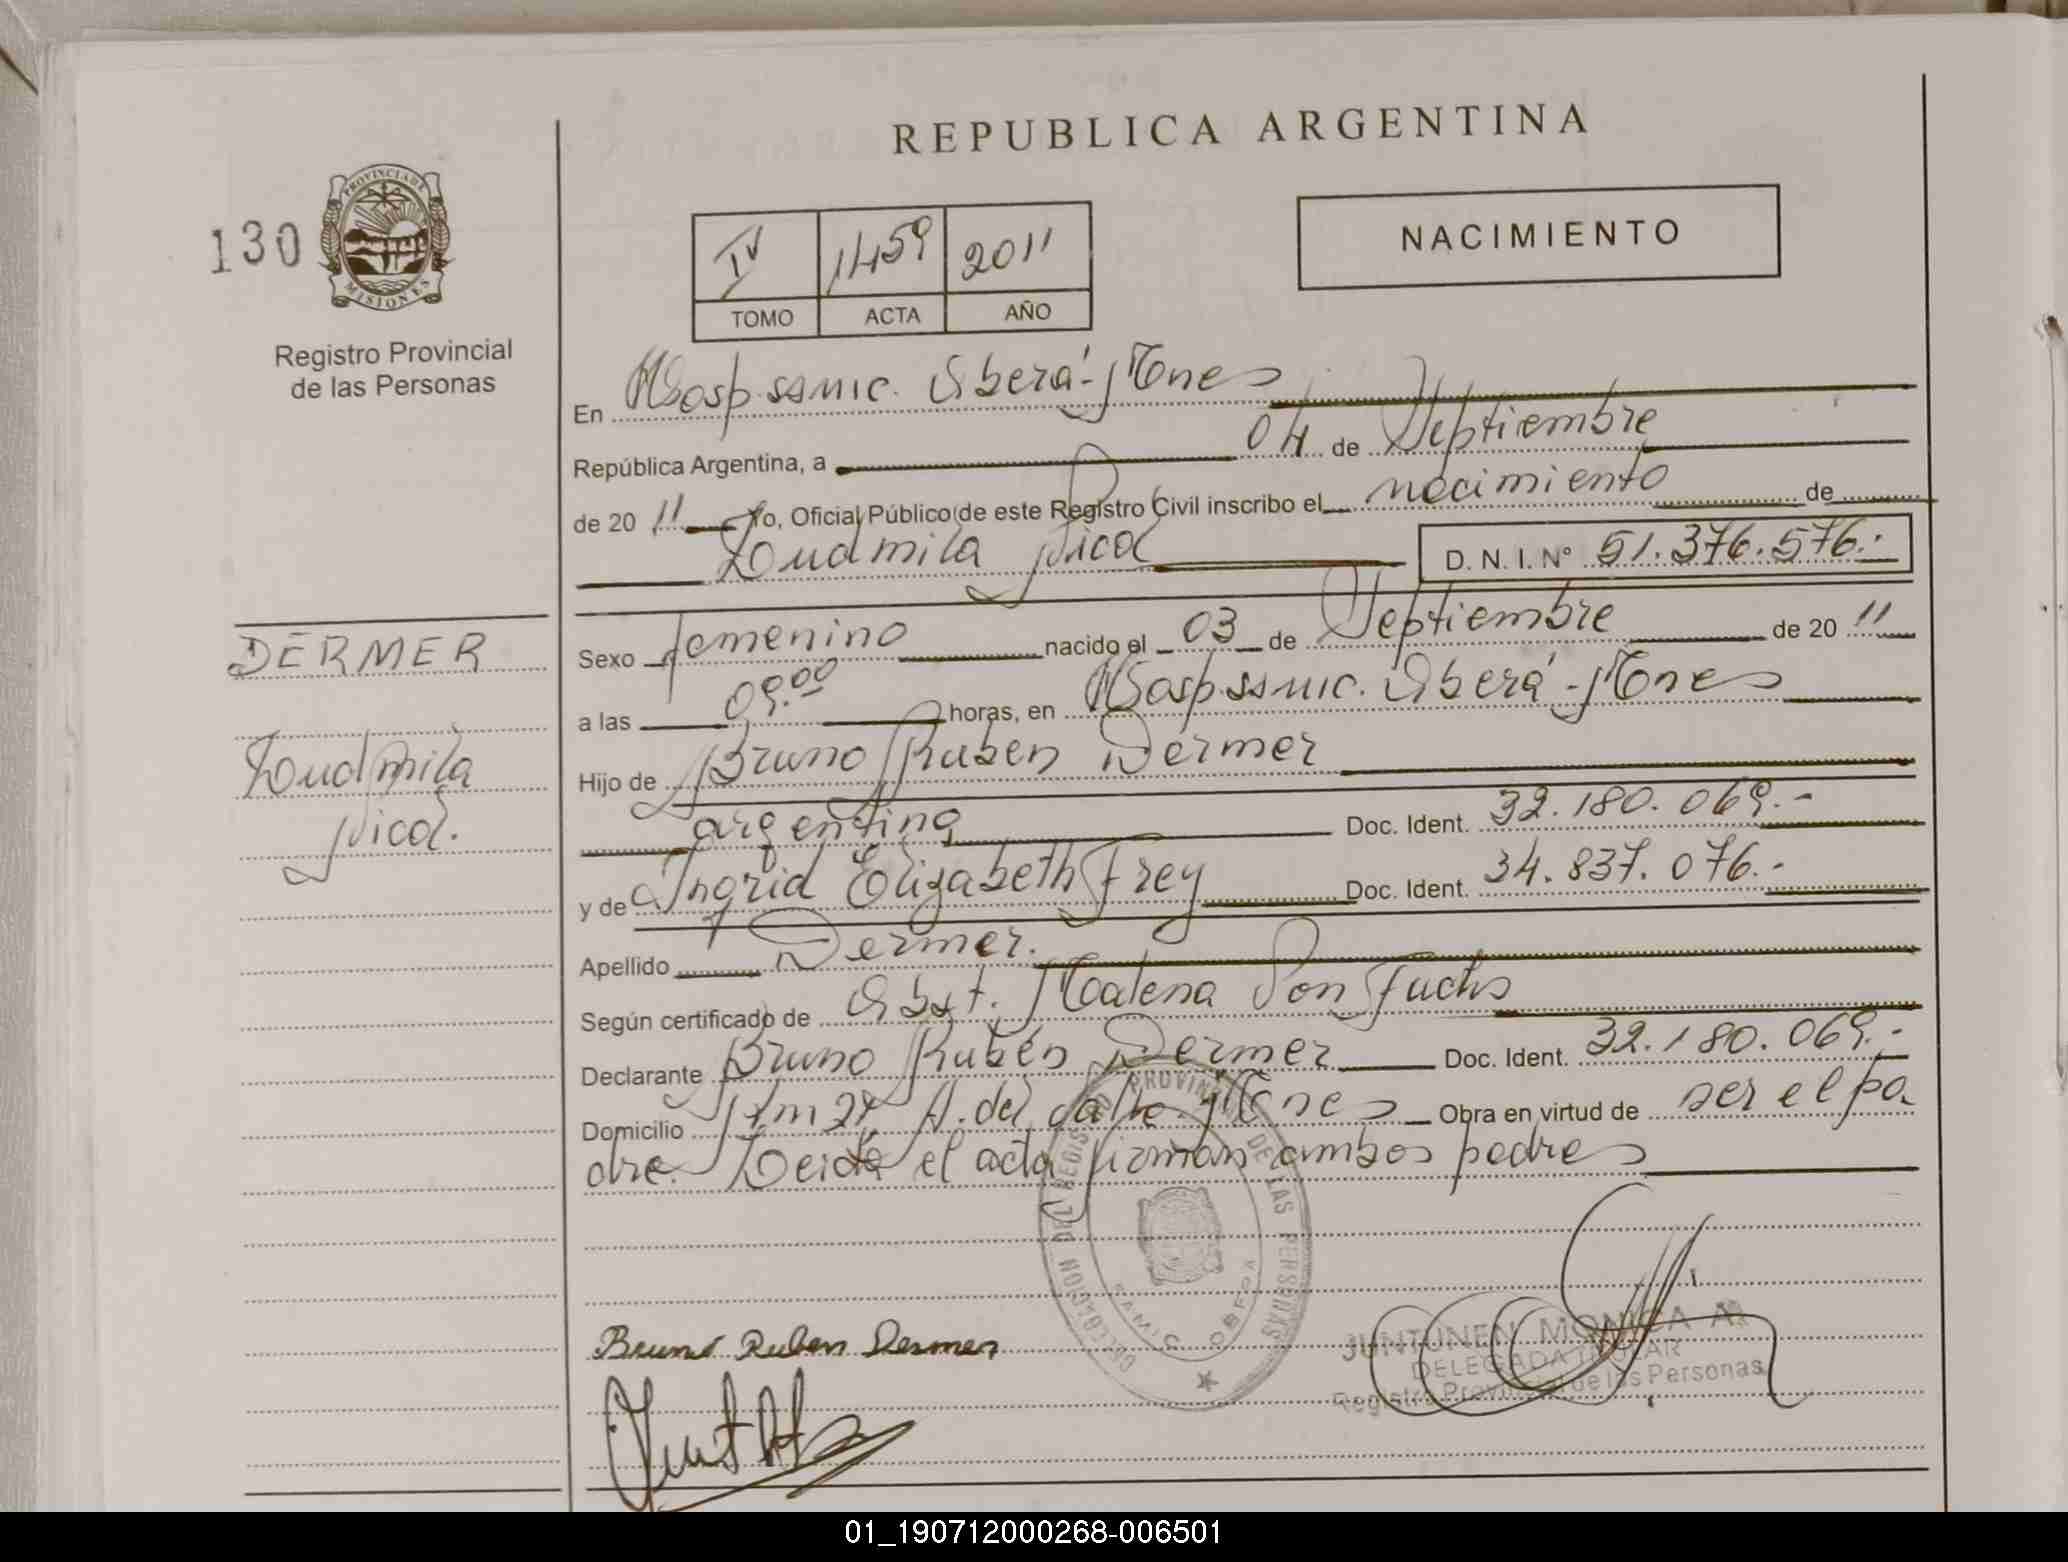 REPUBLICA ARGENTINA
130
PROVINCIA DE
MISIONES
Registro Provincial
de las Personas
IV 1459 2011
TOMO ACTA AÑO
NACIMIENTO
En Hosp. samic. Oberá-Mnes
República Argentina, a 04 de Septiembre
de 20 11 Yo, Oficial Público de este Registro Civil inscribo el nacimiento de
Ludmila Nicol D. N. I. Nº 51.376.576.-
Sexo femenino nacido el 03 de Septiembre de 20 11
a las 09:00 horas, en Hosp. samic. Oberá-Mnes
Hijo de Bruno Ruben Dermer
argentino Doc. Ident. 32.180.069.-
y de Ingrid Elizabeth Frey Doc. Ident. 34.837.076.-
Apellido Dermer.
Según certificado de Obst. Malena Von Fuchs
Declarante Bruno Ruben Dermer Doc. Ident. 32.180.069.-
Domicilio Km 24 A. del Valle Mnes Obra en virtud de ser el pa
dre. Leida el acta firman ambos padres
DERMER
Ludmila
Nicol.
DELEGACION DEL REGISTRO PROVINCIAL DE LAS PERSONAS
SAMIC OBERA
Bruno Ruben Dermer
JUNTUNEN MONICA A.
DELEGADA TITULAR
Registro Provincial de las Personas
01_190712000268-006501